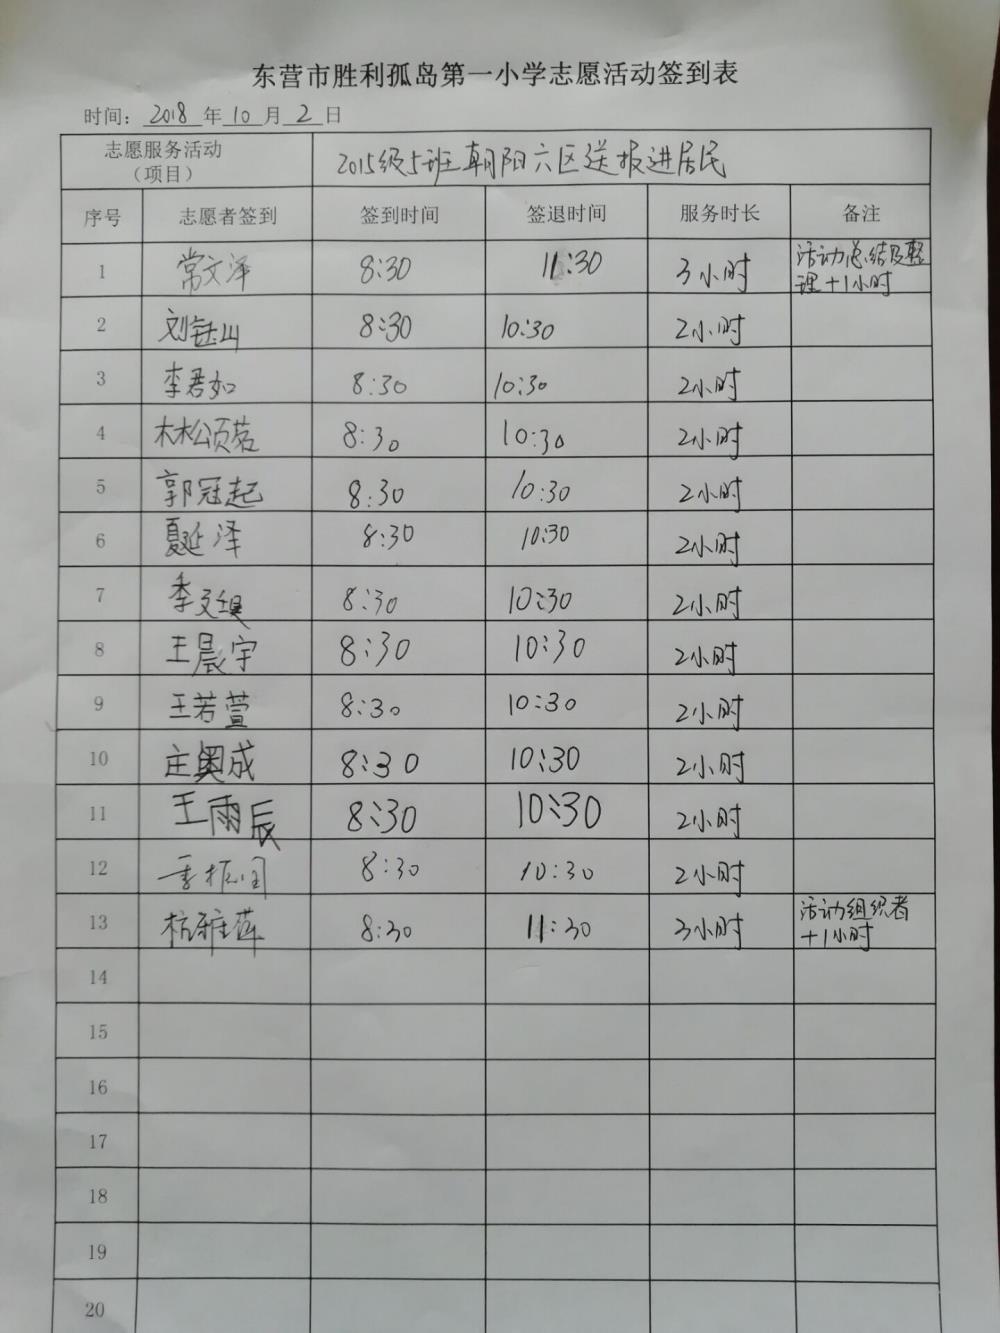 东营市胜利孤岛第一小学志愿活动签到表
时间：2018年10月2日
志愿服务活动（项目） 2015级5班朝阳六区送报进居民
序号 志愿者签到 签到时间 签退时间 服务时长 备注
1 常文泽 8:30 11:30 3小时 活动总结及整理+1小时
2 刘钰山 8:30 10:30 2小时
3 李君如 8:30 10:30 2小时
4 林松颉茗 8:30 10:30 2小时
5 郭冠起 8:30 10:30 2小时
6 夏延泽 8:30 10:30 2小时
7 季 8:30 10:30 2小时
8 王晨宇 8:30 10:30 2小时
9 王若萱 8:30 10:30 2小时
10 庄奥成 8:30 10:30 2小时
11 王雨辰 8:30 10:30 2小时
12 季振国 8:30 10:30 2小时
13 杭雅萍 8:30 11:30 3小时 活动组织者+1小时
14
15
16
17
18
19
20